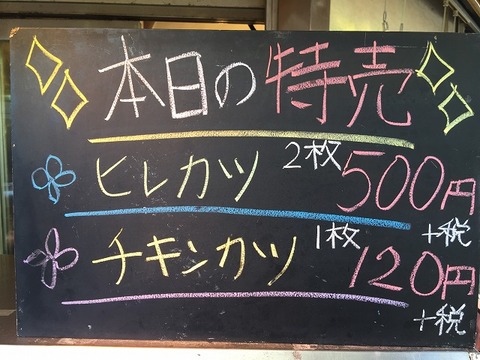 本日の特売
ヒレカツ 2枚 500円
+税
チキンカツ 1枚 120円
+税